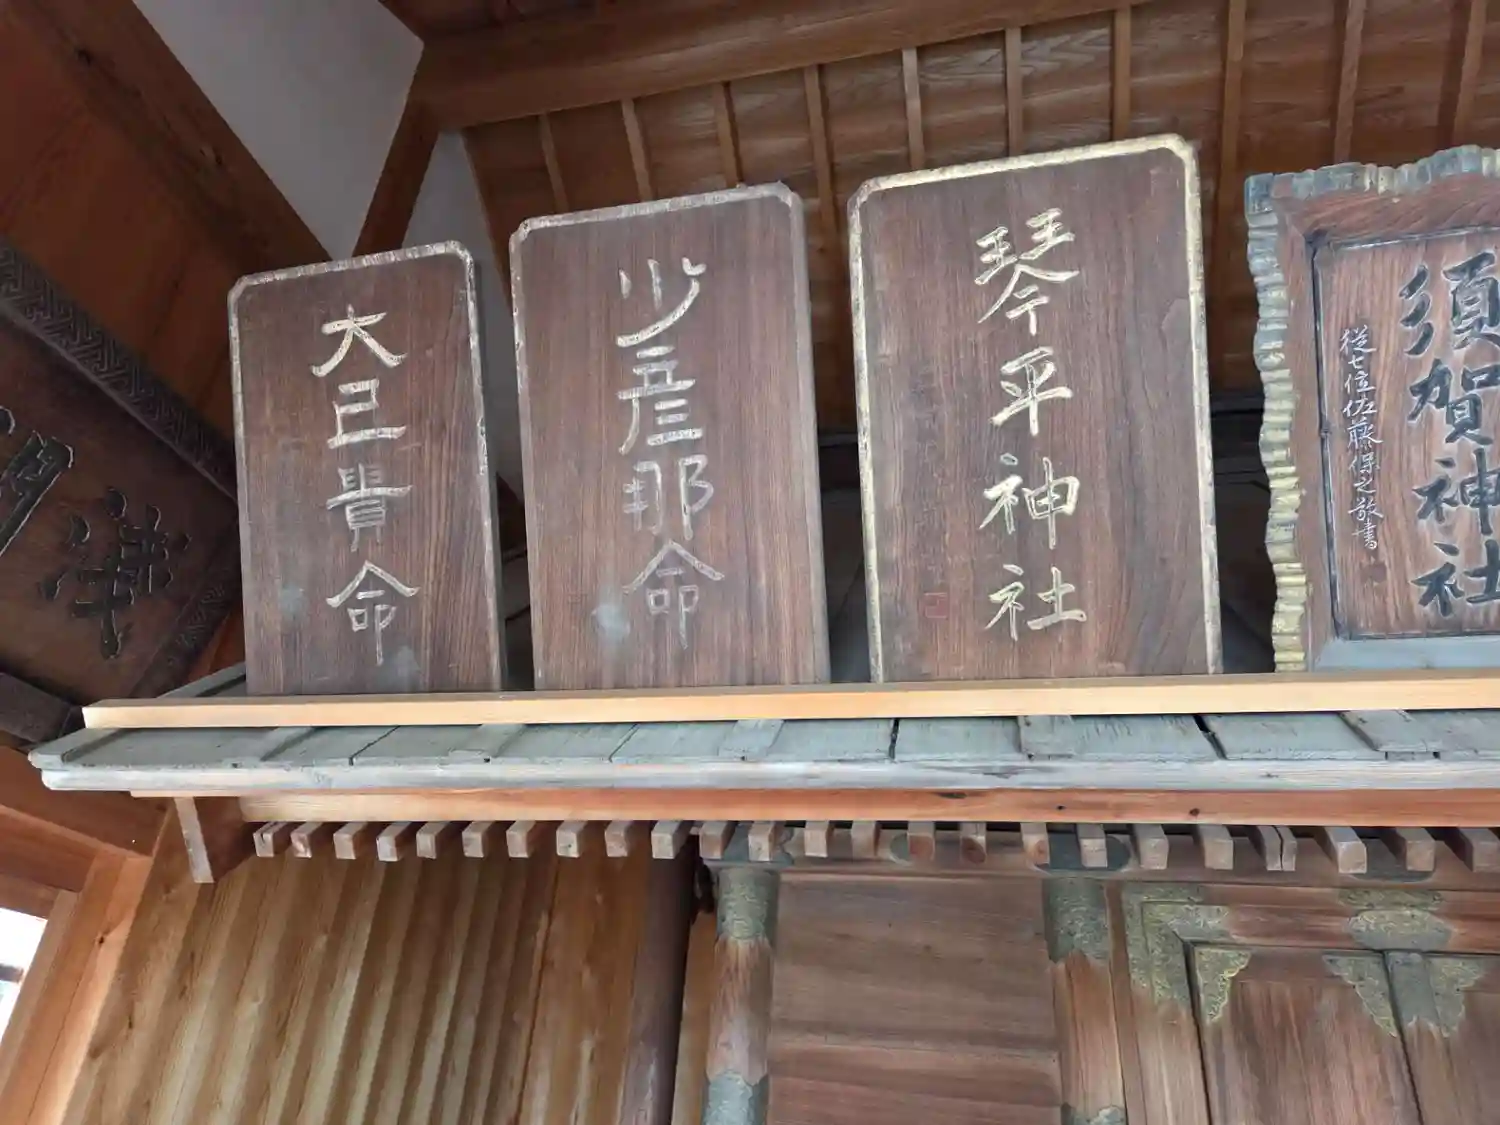 大己貴命
少彦那命
琴平神社
須賀神社
從七位佐藤保之敬書